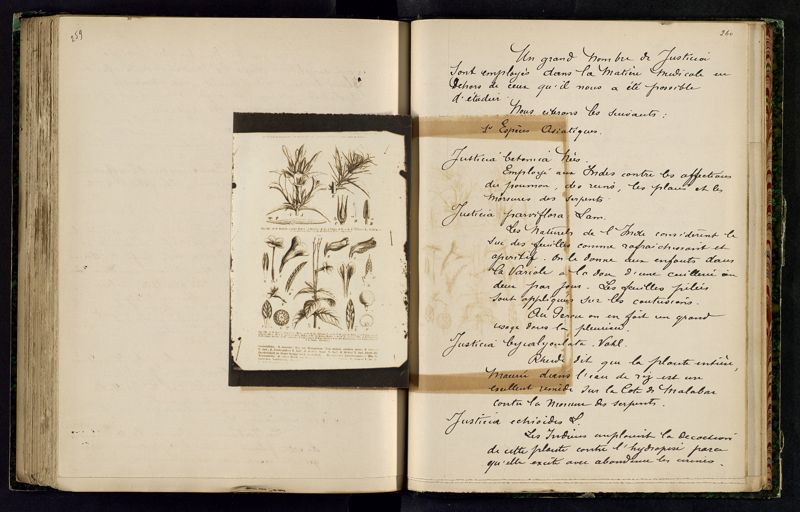 259
260
Un grand nombre de Justicia
sont employés dans la matière médicale en
dehors de ceux qu'il nous a été possible
d'étudier
Nous citerons les suivants :
1° Espèces Asiatiques.
Justicia betonica Nées.
Employé aux Indes contre les affections
du poumon, des reins, les plaies et les
morsures des serpents
Justicia parviflora Lam.
Les naturels de l'Inde considèrent le
suc des feuilles comme rafraichissant et
apéritif. On le donne aux enfants dans
la Variole à la dose d'une cuillerée ou
deux par jour. Les feuilles pilées
sont appliquées sur les contusions.
Au Perou on en fait un grand
usage dans la pleurésie.
Justicia Vahl.
Rheede dit que la plante entière,
dans l'eau de riz est un
excellent remède sur la Cote de Malabar
contre la morsure des serpents.
Justicia echioides L
Les Indiens emploient la décoction
de cette plante contre l'hydropisie parce
qu'elle excite avec abondance les urines.